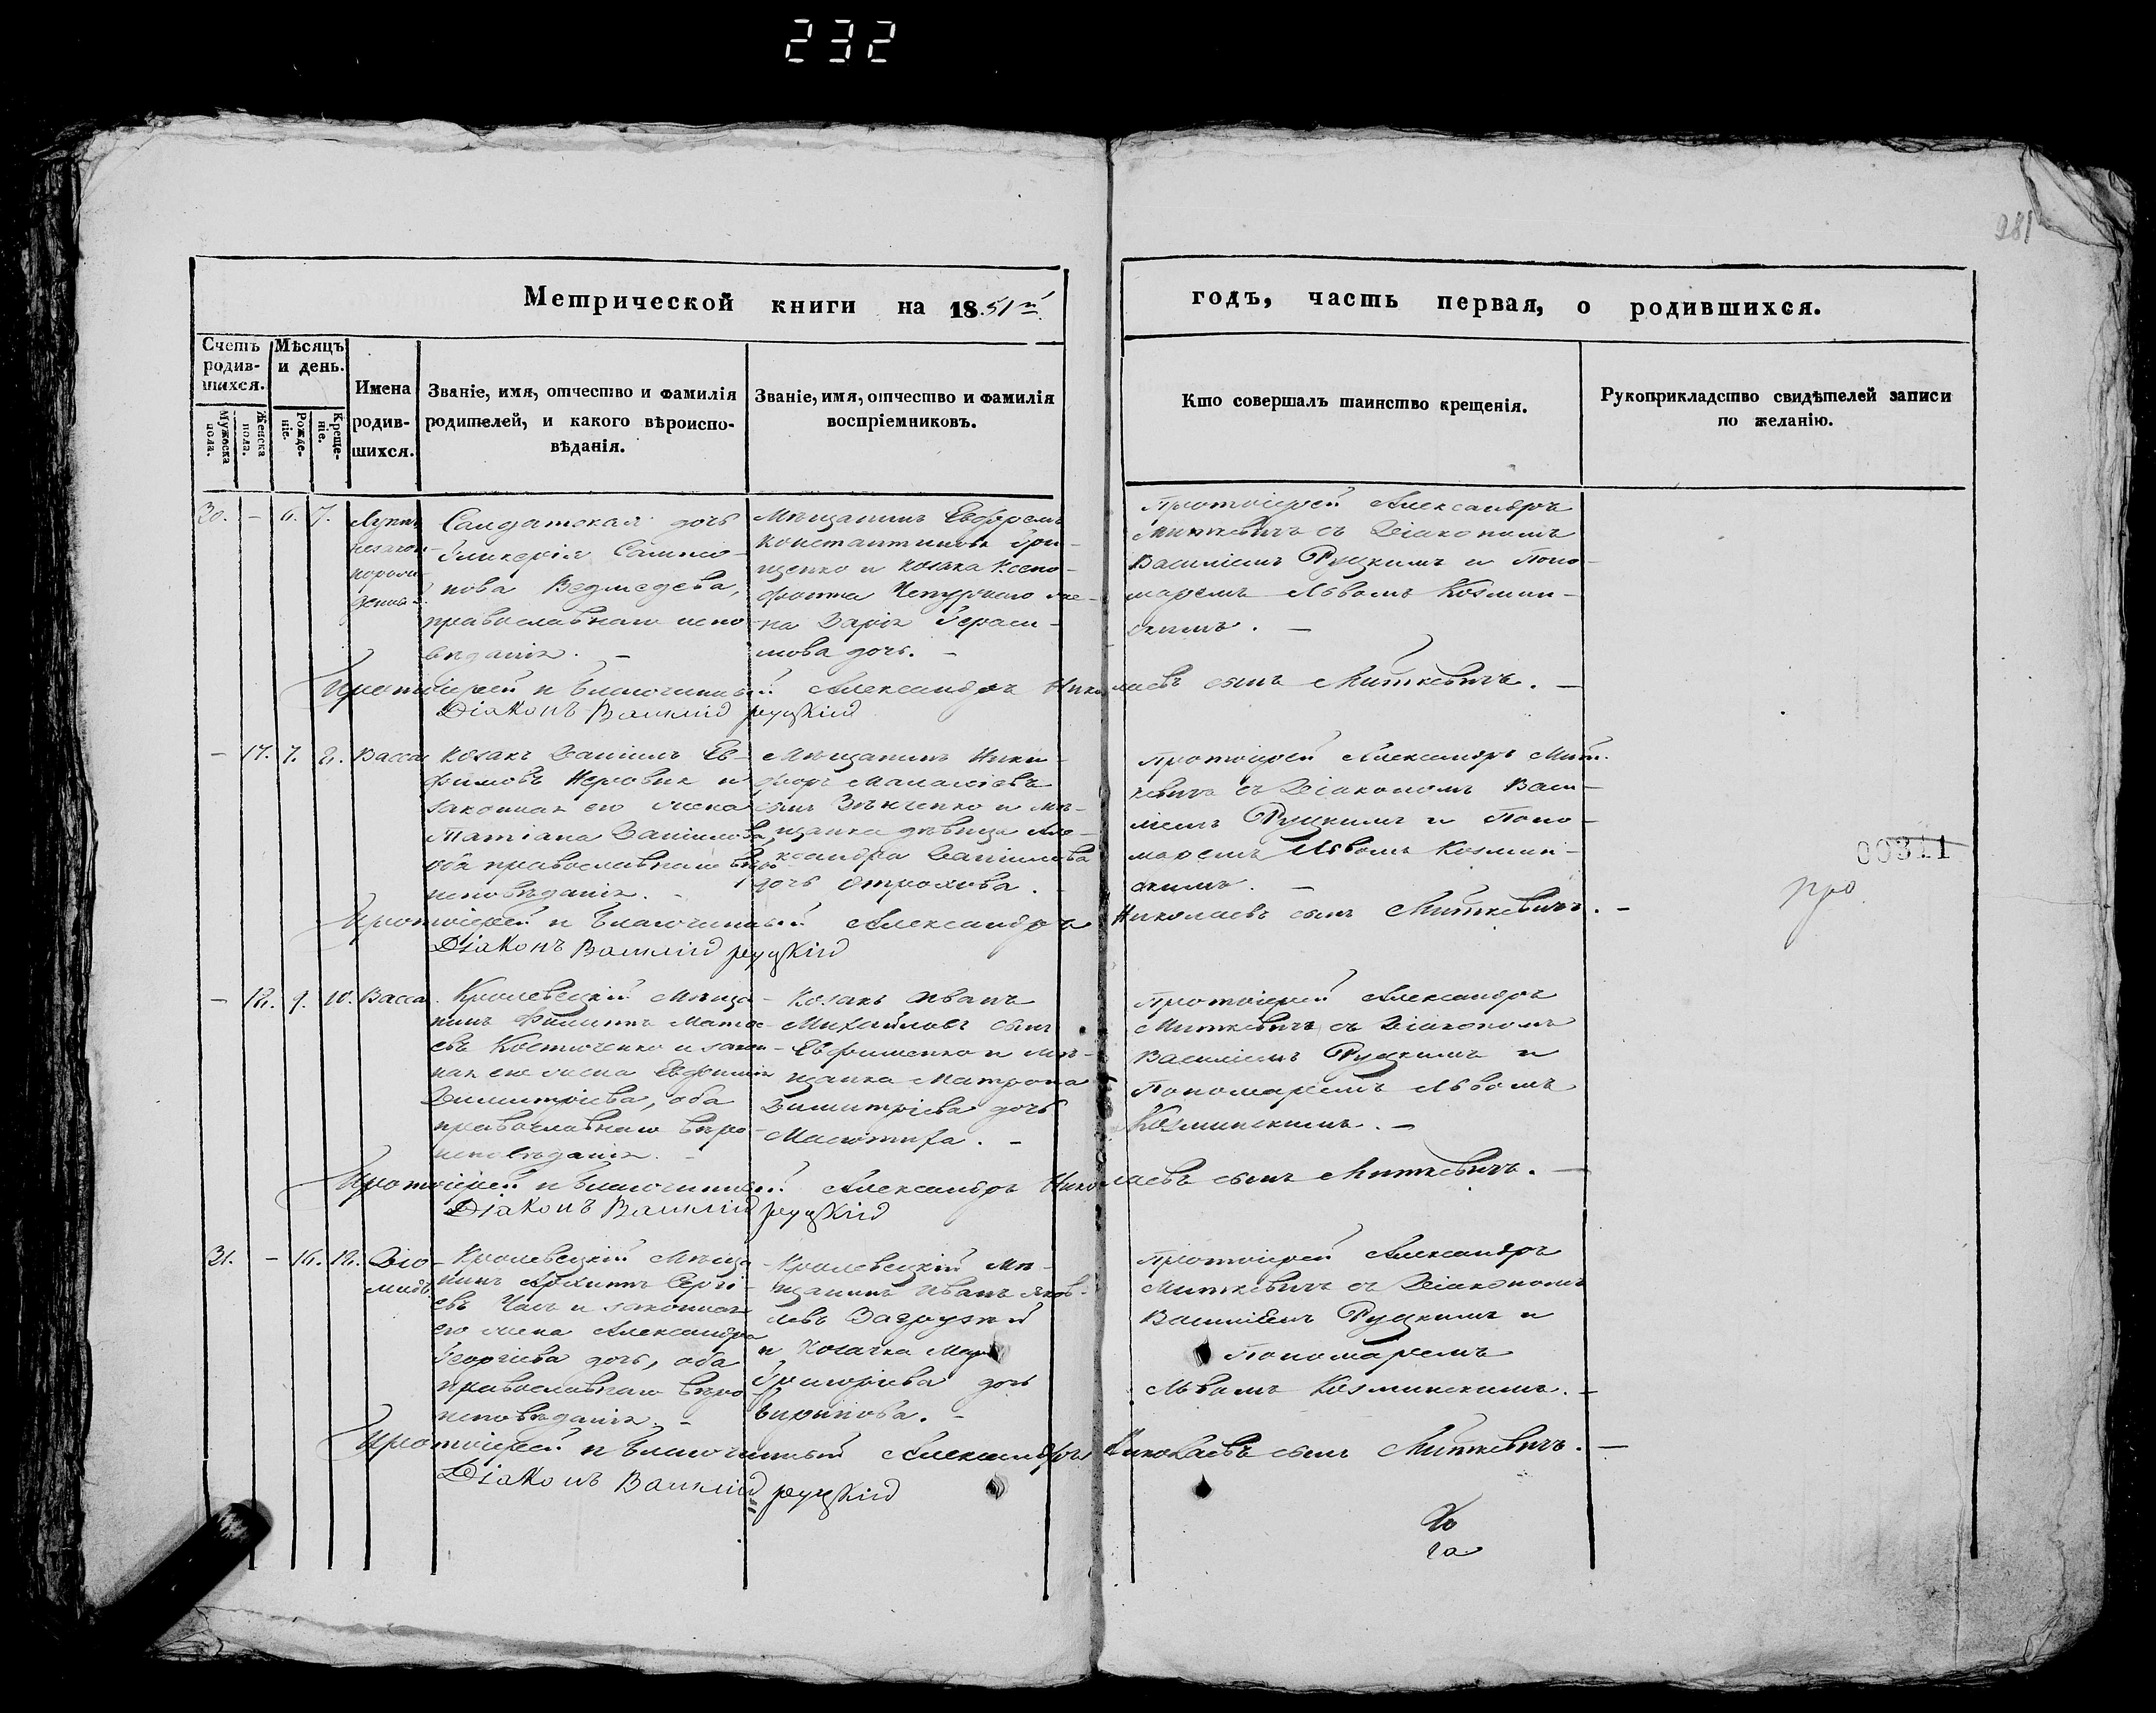 232
281
Метрической книги на 1851й
годъ, часть первая, о родившихся.
Счетъ родив-шихся.
Мужеска пола.
Женска пола.
Мѣсяцъ и день.
Рожде-ніе.
Креще-ніе.
Имена
родив-
шихся.
Званіе, имя, отчество и фамилія
родителей, и какого вѣроиспо-
вѣданія.
Званіе, имя, отчество и фамилія
воспріемниковъ.
Кто совершалъ таинство крещенія.
Рукоприкладство свидѣтелей записи
по желанію.
30. - 6. 7.
Солдатская дочь
Гликерія
Ведмедева,
православнаго испо
вѣданія. -
Мѣщанинъ
Константиновъ Гри-
щенко и козака Ксено-
фонта
на Дарія Гераси-
мова дочь. -
Протоіерей Александръ
Миткевичъ съ Діакономъ
Василіемъ Руцкимъ и Поно-
маремъ Львомъ Козмин-
скимъ. -
Протоіерей и Благочинный Александръ Николаевъ сынъ Миткевичъ. -
Діаконъ Василій Руцкій
- 17. 7. 8. Васса
Козакъ Даніилъ Ев-
фимовъ и
законная его жена
Татіана Даніилова,
оба православнаго вѣро
исповѣданія. -
Мѣщанинъ Ники-
форъ
сынъ и мѣ-
щанка дѣвица Але-
ксандра Даніилова
дочь Отрохова. -
Протоіерей Александръ Мит-
кевичъ съ Діакономъ Васи-
ліемъ Руцкимъ и Поно-
маремъ Львомъ Козмин-
скимъ. -
Протоіерей и Благочинный Александръ Николаевъ сынъ Миткевичъ. -
Діаконъ Василій Руцкій
00311
- 18. 9. 10. Васса.
Кролевецкій Мѣща-
нинъ Филиппъ
евъ Костюченко и закон-
ная его жена Евфимія
Димитріева, оба
православнаго вѣро-
исповѣданія. -
Козакъ Иванъ
Михайловъ сынъ
Евфименко и мѣ-
щанка Матрона
Димитріева дочь
-
Протоіерей Александръ
Миткевичъ съ Діакономъ
Василіемъ Руцкимъ и
Пономаремъ Львомъ
Козминскимъ. -
Протоіерей и Благочинный Александръ Николаевъ сынъ Миткевичъ. -
Діаконъ Василій Руцкій
31. - 16. 18. Діо-
мидъ.
Кролевецкій Мѣща-
нинъ Архиппъ Сергі-
евъ и законная
его жена Александра
Георгіева дочь, оба
православнаго вѣро
исповѣданія. -
Кролевецкій Мѣ-
щанинъ Иванъ Яков-
левъ
и Козачка
Григоріева дочь
-
Протоіерей Александръ
Миткевичъ съ Діакономъ
Василіемъ Руцкимъ и
Пономаремъ
Львомъ Козминскимъ. -
Протоіерей и Благочинный Александръ Николаевъ сынъ Миткевичъ. -
Діаконъ Василій Руцкій